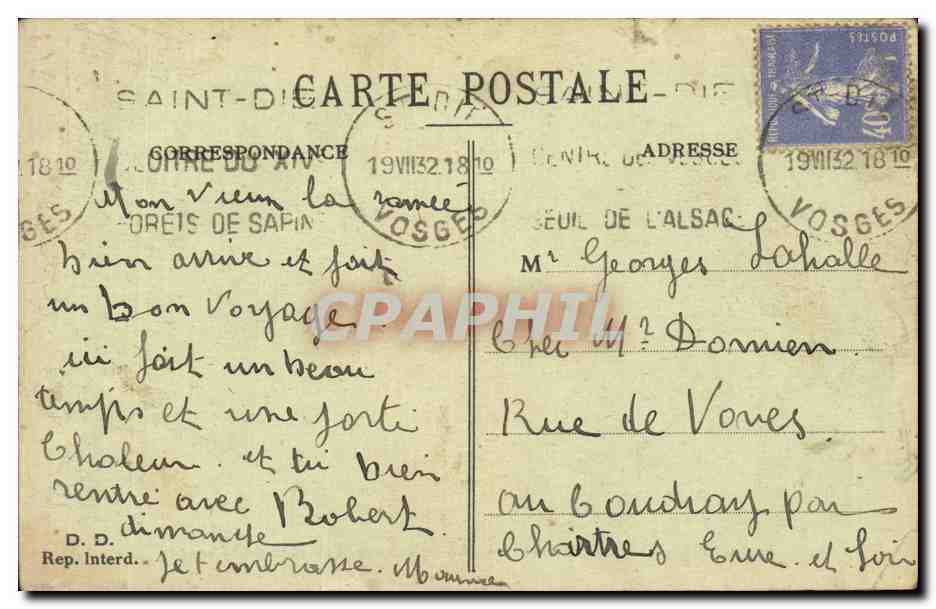 CARTE POSTALE
SAINT-DIE
CORRESPONDANCE
ADRESSE
19 VII 32. 18 10
VOSGES
CENTRE DES VOSGES
SEUIL DE L'ALSAC
CLOITRE DU XIV
FORETS DE SAPIN
POSTES
40
Mon vieux la ramée
bien arrivé et fait
un bon voyage.
ici fait un beau
temps et une forte
Chaleur. et tu bien
rentré avec Robert
dimanche
Je t embrasse. Maurice
D. D.
Rep. Interd.
Mr Georges Lahalle
Chez Mr Domien
Rue de Voves
au Coudray par
Chartres Eure et Loir
CPAPHIL